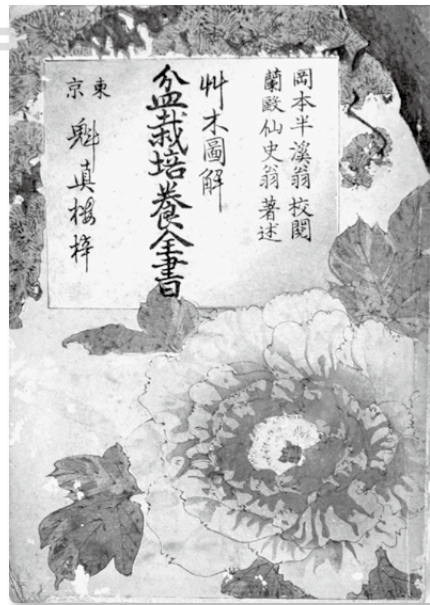 岡本半溪翁校閲
蘭歐仙史翁著述
艸木圖解
盆栽培養全書
東京
魁真楼梓